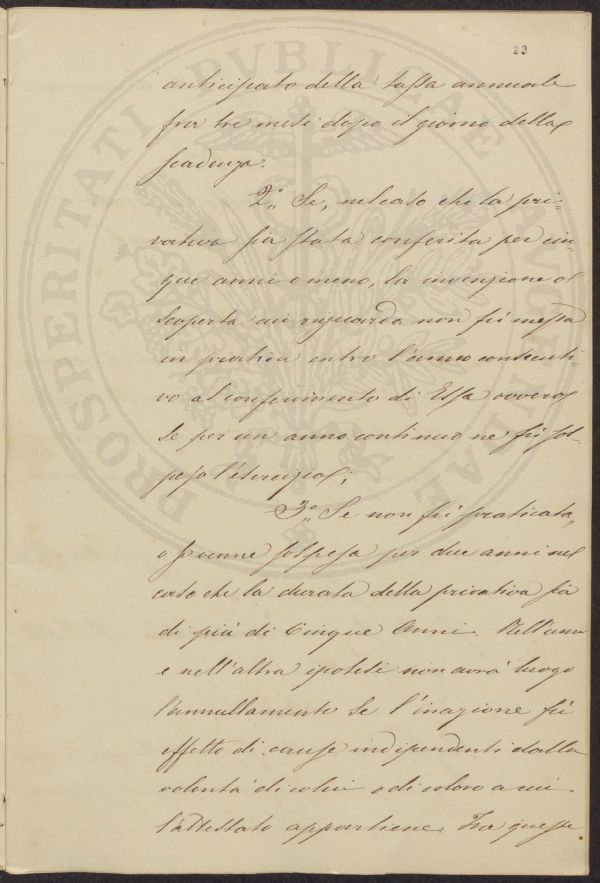 23
anticipato della tassa annuale
fra tre mesi dopo il giorno della
scadenza.
2.° Se, nel caso che la pri-
vativa sia stata conferita per cin-
que anni o meno, la invenzione o
scoperta cui riguarda non fù messa
in pratica entro l'anno consecuti-
vo al conferimento di Essa ovvero
se per un anno continuo ne fù sos-
peso l'esercizio;
3.° Se non fù praticata,
o ne venne sospesa per due anni nel
caso che la durata della privativa sia
di più di Cinque Anni. Nell'una
e nell'altra ipotesi non avrà luogo
l'annullamento se l'inazione fù
effetto di cause indipendenti dalla
volontà di colui o di coloro a cui
l'attestato appartiene. Fra queste
PROSPERITATI PVBLICAE AVGENDAE